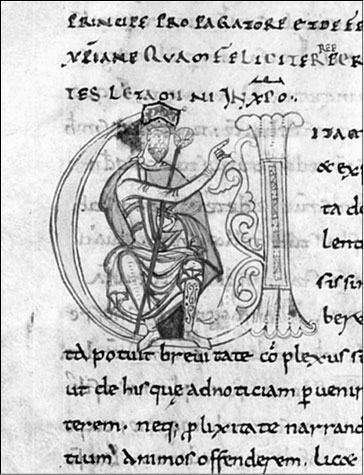 PRINCIPE PROPAGATORE ET DEFE
XPĪANE QUAM FELICITER REP
TES LETA OMNI IN XP̄O.
ITA
& ex
ta de
lent
sissin
berx
tā potuit breuitate cō plexus si
ut de his que ad noticiam puenir
terem. neq; plixitate narrand
tium animos offenderem. licx